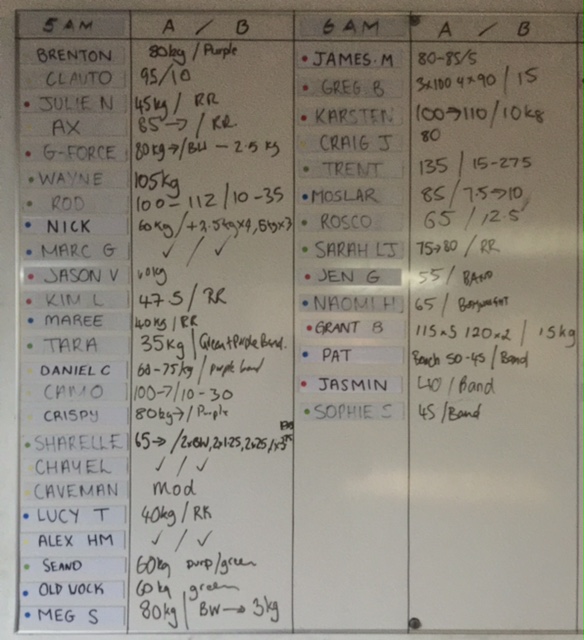 5 AM A / B
BRENTON 80kg / Purple
CLAUTO 95/10
JULIE N 45kg / RR
AX 85 → / RR
G-FORCE 80kg → / BW - 2.5 kg
WAYNE 105kg
ROD 100 - 112 / 10 - 35
NICK 60kg / +2.5kg x4, 5kg x3
MARC G ✓ / ✓
JASON V kg
KIM L 47.5 / RR
MAREE 40kg / RR
TARA 35kg / Green + Purple Band.
DANIEL C 60-75kg / purple band
CAMO 100 → / 10 - 30
CRISPY 80kg → / Purple
SHARELLE 65 → / 2xBW, 2x1.25, 2x2.5
CHAYEL ✓ / ✓
CAVEMAN Mod
LUCY T 40kg / RR
ALEX HM ✓ / ✓
SEAND 60kg purp/green
OLD VOCK 60kg green
MEG S 80kg / BW → 3kg
6 AM A / B
JAMES.M 80-85/5
GREG B 3x100 4x90 / 15
KARSTEN 100→110 / 10kg
CRAIG J 80
TRENT 135 / 15-27.5
MOSLAR 85 / 7.5→10
ROSCO 65 / 12.5
SARAH LJ 75→80 / RR
JEN G 55 / BAND
NAOMI H 65 / Bodyweight
GRANT B 115x5 120x2 / 15kg
PAT Bench 50-45 / Band
JASMIN 40 / Band
SOPHIE S 45 / Band